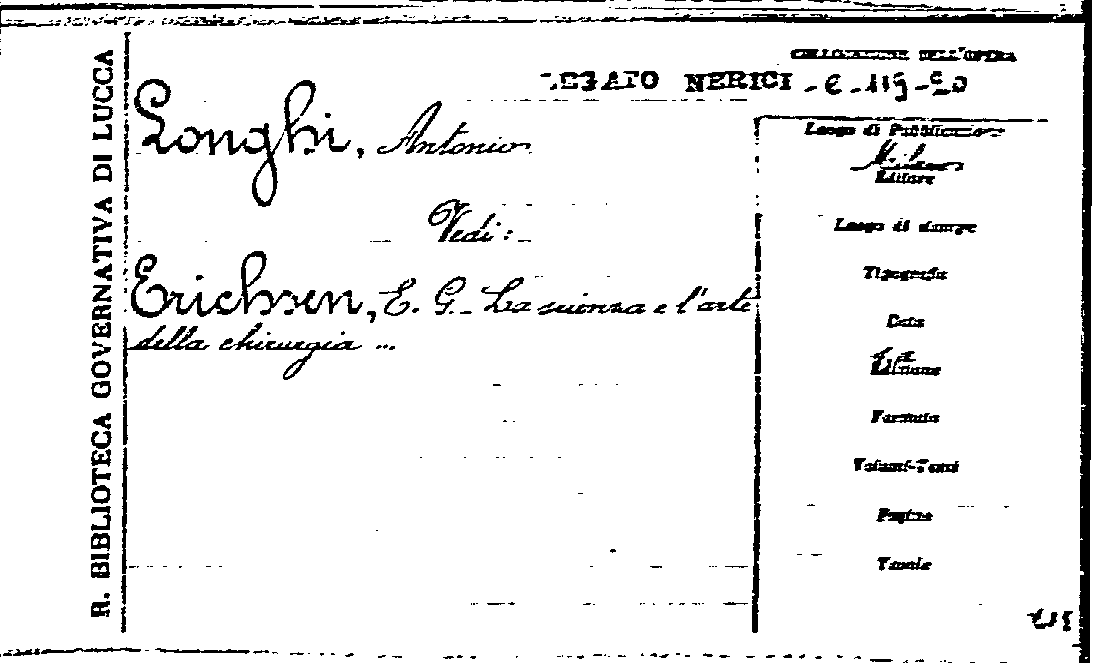 R. BIBLIOTECA GOVERNATIVA DI LUCCA
COLLOCAZIONE DELL'OPERA
LEGATO NERICI - C - 119-20
Longhi, Antonio
Vedi:
Erichsen, E. G. - La scienza e l'arte
della chirurgia ...
Luogo di Pubblicazione
Milano
Editore
Luogo di stampa
Tipografia
Data
Edizione
Formato
Volumi-Tomi
Pagine
Tavole